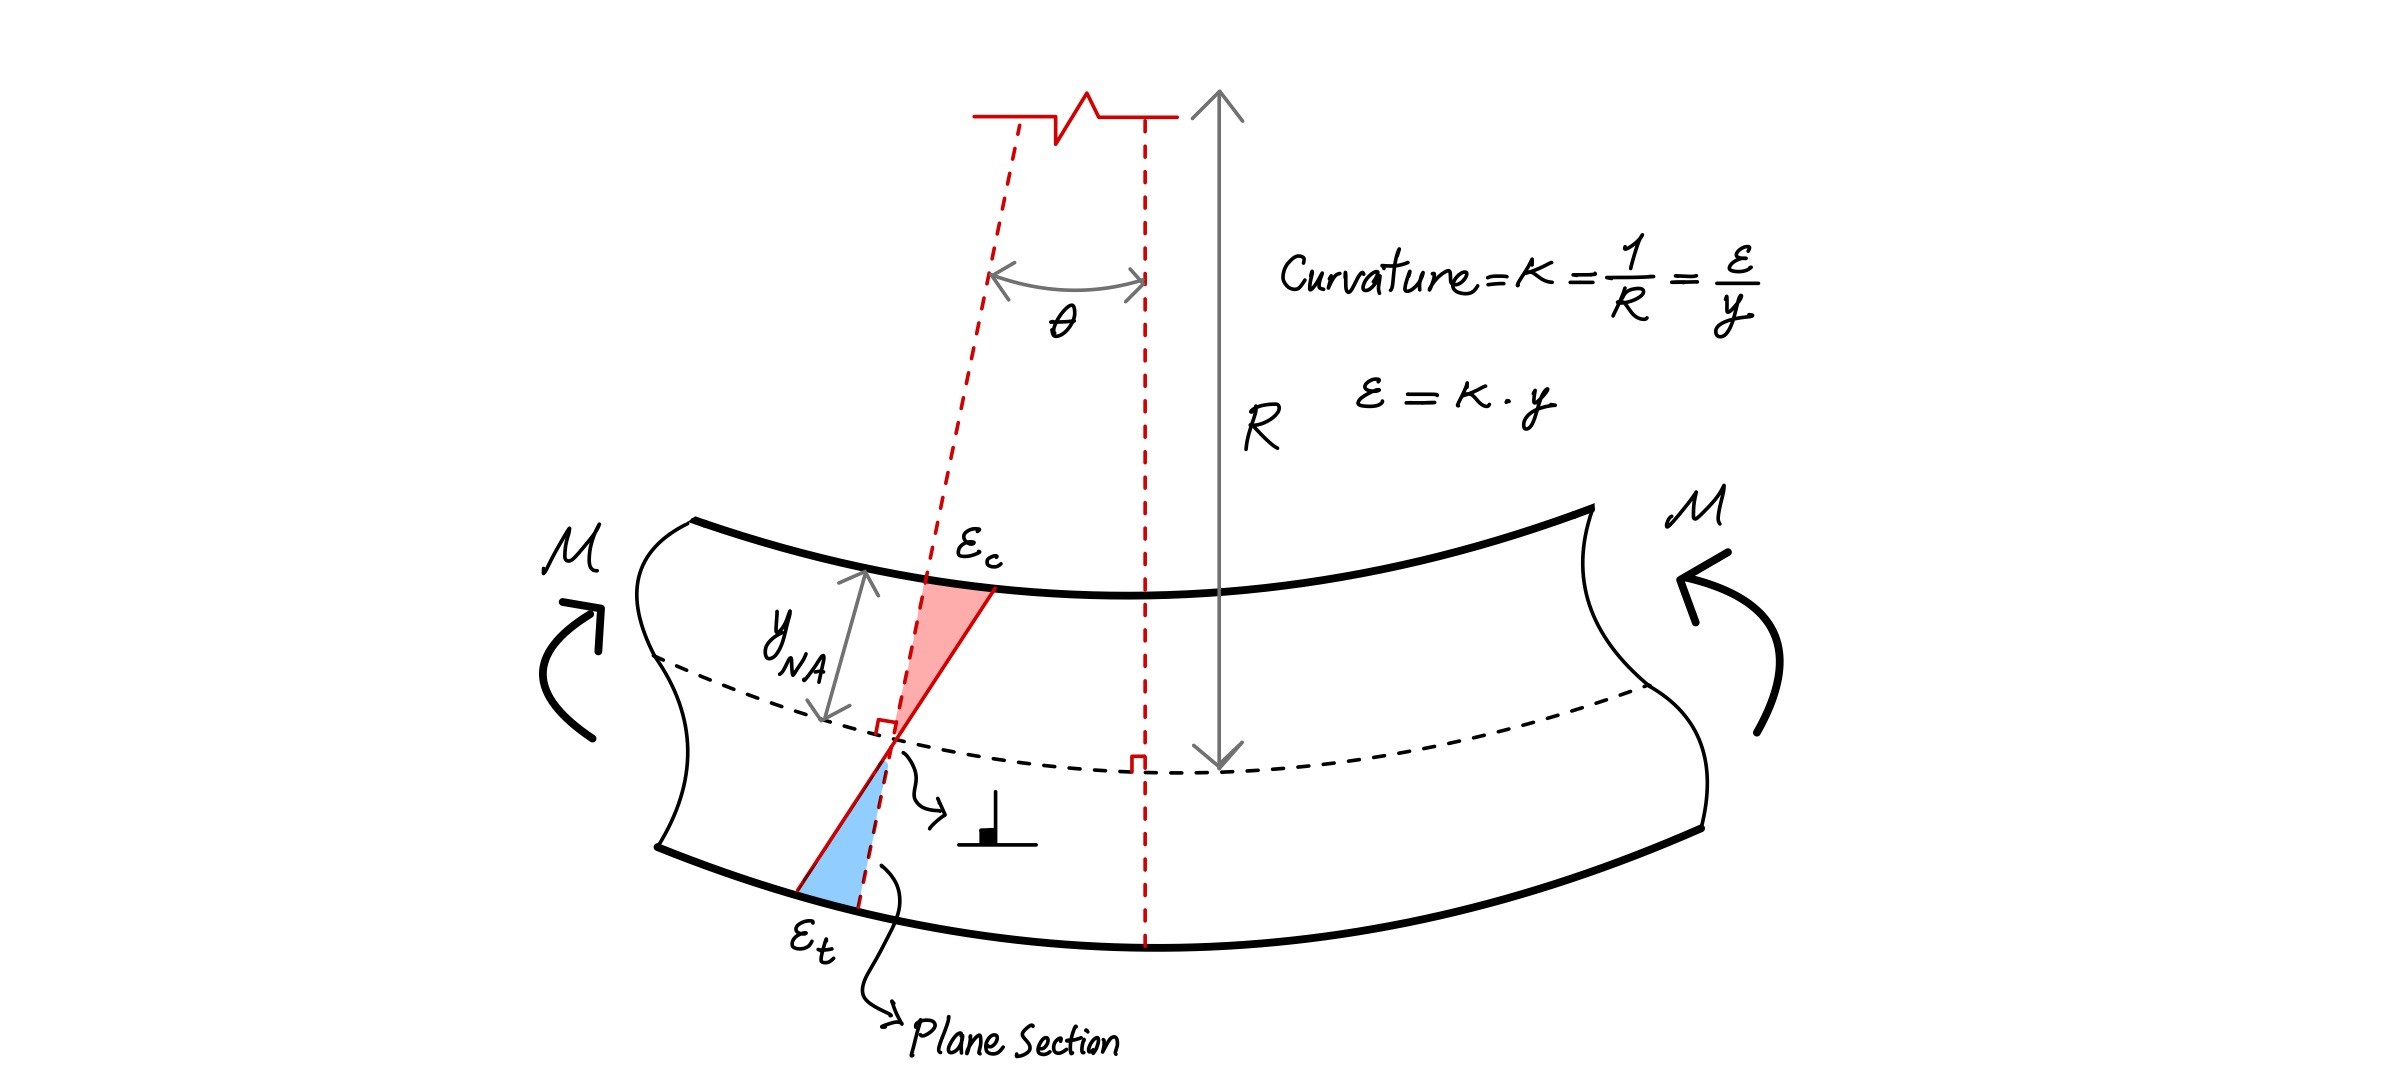 θ
Curvature = κ = 1/R = ε/y
R
ε = κ · y
M
M
εc
yNA
εt
Plane Section